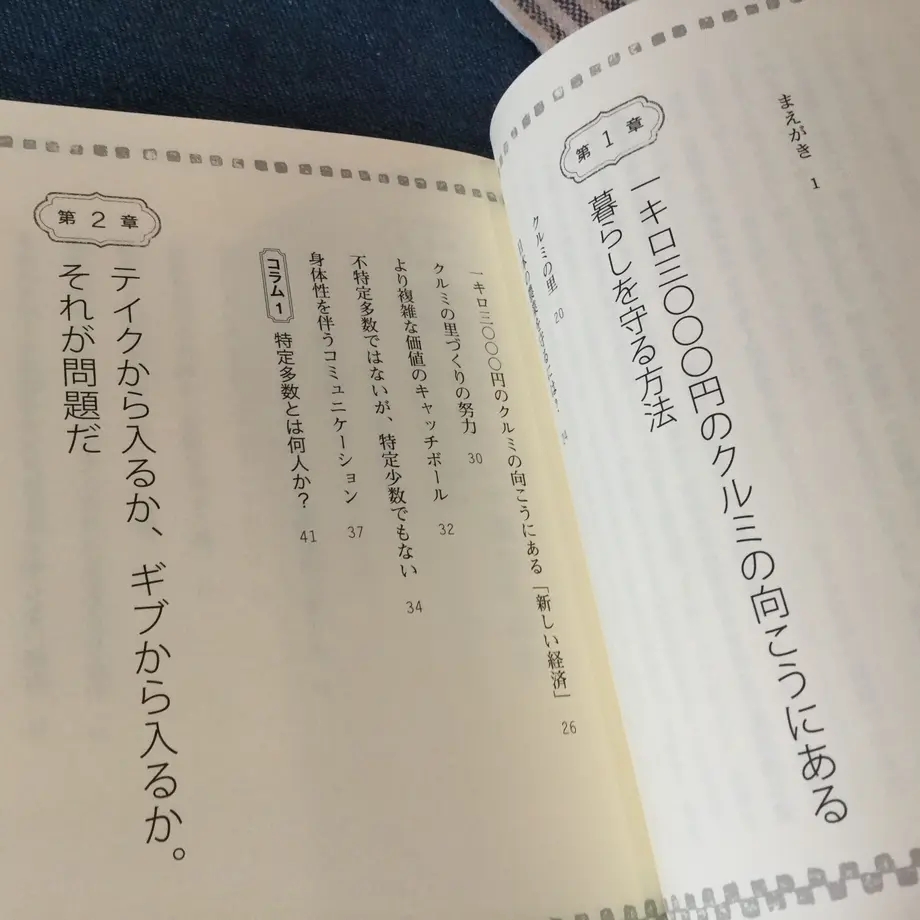 まえがき 1
第1章
一キロ三〇〇〇円のクルミの向こうにある
暮らしを守る方法
クルミの里 20
一キロ三〇〇〇円のクルミの向こうにある「新しい経済」 26
クルミの里づくりの努力 30
より複雑な価値のキャッチボール 32
不特定多数ではないが、特定少数でもない 34
身体性を伴うコミュニケーション 37
コラム1 特定多数とは何人か? 41
第2章
テイクから入るか、ギブから入るか。
それが問題だ